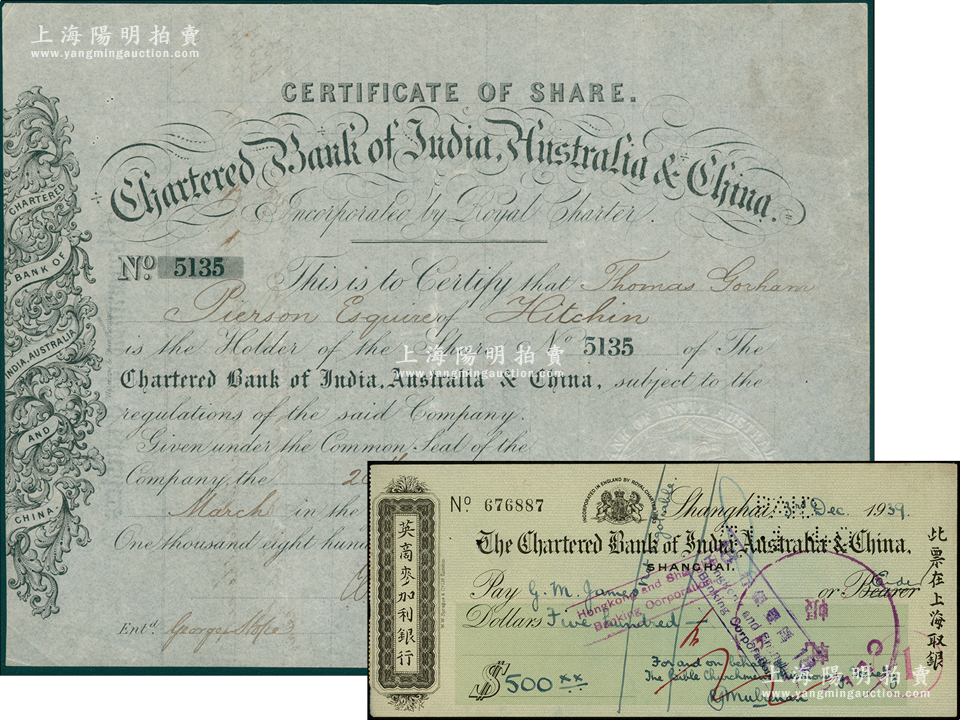 上海陽明拍賣
www.yangmingauction.com
CERTIFICATE OF SHARE.
Chartered Bank of India, Australia & China.
Incorporated by Royal Charter.
CHARTERED
BANK OF
INDIA, AUSTRALIA
AND
CHINA
No. 5135
This is to Certify that Thomas Gorham
Pierson Esquire of Hitchin
is the Holder of the Share No 5135 of The
Chartered Bank of India, Australia & China, subject to the
regulations of the said Company.
Given under the Common Seal of the
Company, the
March in the
One thousand eight hund
Entd. George
上海陽明拍賣
www.yangmingauction.com
英高麥加利銀行
No 676887
INCORPORATED IN ENGLAND BY ROYAL CHARTER
Shanghai, Dec. 1939.
The Chartered Bank of India Australia & China,
SHANGHAI.
Pay G. M. James or Bearer
Order
Dollars Five hundred
$ 500 xx
Hongkong and Shanghai
Banking Corporation
For and on behalf
The Bible Churchmen's Missionary Society
此票在上海取銀
上海陽明拍賣
www.yangmingauction.com